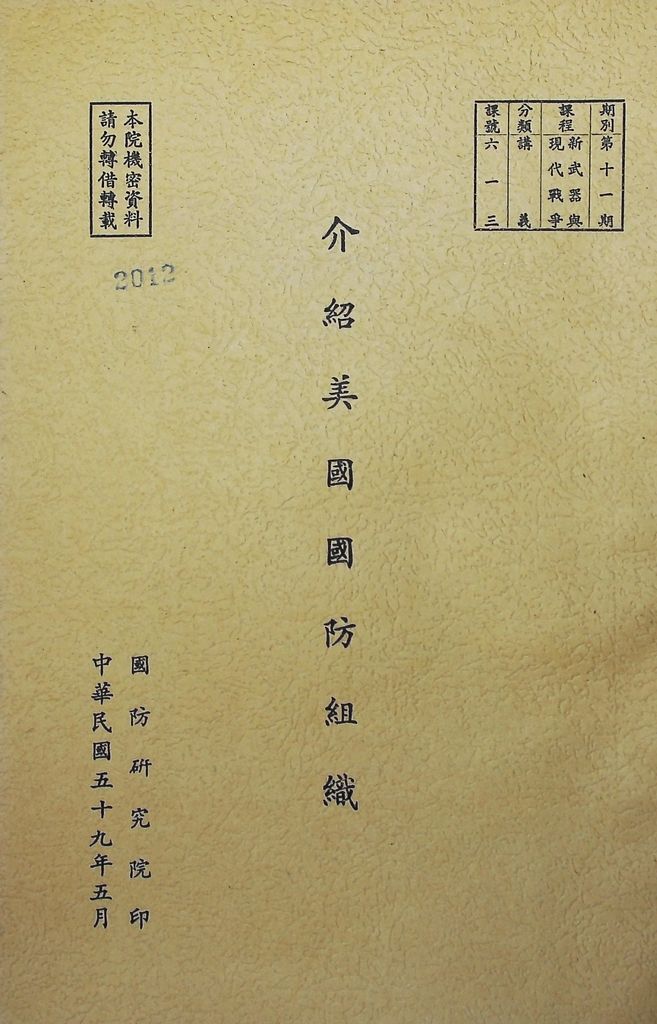 期別 第十一期
課程 新武器與
現代戰爭
分類 講義
課號 六一三
介紹美國國防組織
本院機密資料
請勿轉借轉載
2012
國防研究院印
中華民國五十九年五月